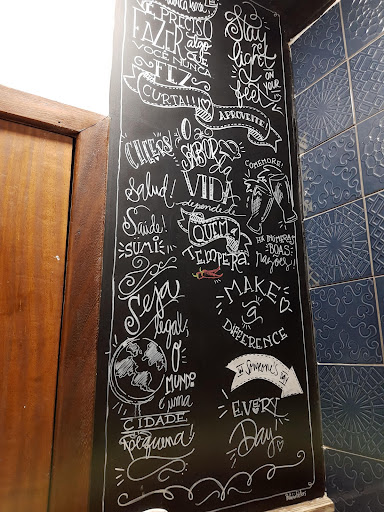 É PRECISO
FAZER algo
QUE
VOCÊ NUNCA
FEZ
CURTA!!!
APROVEITE!
Stay
light
ON
YOUR
feet
CHEERS!
Salud!
Saúde!
O
SABOR
da
VIDA
depende de
QUEM
TEMPERA!
COMEMORE!
BOAS
razões!
SUMI
Seja
legal,
O
MUNDO
é uma
CIDADE
Pequena!
MAKE
a
DIFFERENCE
EVERY
Day